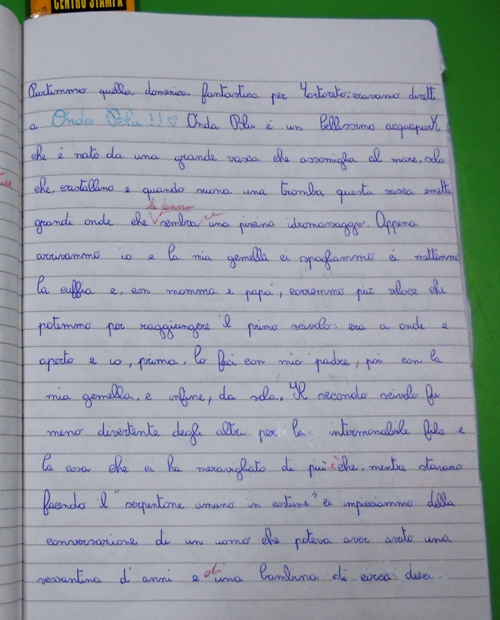 CENTRO STAMPA
Partimmo quella domenica fantastica per Tortoreto: eravamo diretti
a Onda Blu!! Onda Blu è un bellissimo acquapark
che è nato da una grande vasca che assomiglia al mare, solo
che, cristallino e quando suona una tromba questa vasca emette
la fanno
grandi onde che sembra una piscina idromassaggio. Appena
arrivammo io e la mia gemella ci spogliammo ci mettemmo
la cuffia e, con mamma e papà, corremmo più veloce che
potemmo per raggiungere il primo scivolo: era a onde e
aperto e io, prima, lo feci con mio padre, poi con la
mia gemella, e infine, da sola. Il secondo scivolo fu
meno divertente degli altri per la interminabile fila e
la cosa che ci ha meravigliato di più è che, mentre stavamo
facendo il "serpentone umano in costume" ci impicciammo della
conversazione di un uomo che poteva aver avuto una
sessantina d'anni e di una bambina di circa dieci